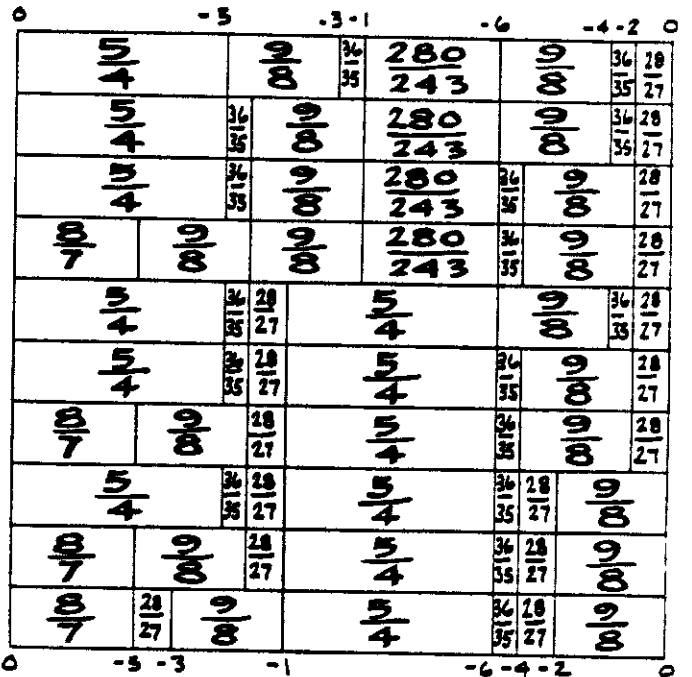 0 -5 -3 -1 -6 -4 -2 0
5/4 9/8 36/35 280/243 9/8 36/35 28/27
5/4 36/35 9/8 280/243 9/8 36/35 28/27
5/4 36/35 9/8 280/243 36/35 9/8 28/27
8/7 9/8 9/8 280/243 36/35 9/8 28/27
5/4 36/35 28/27 5/4 9/8 36/35 28/27
5/4 36/35 28/27 5/4 36/35 9/8 28/27
8/7 9/8 28/27 5/4 36/35 9/8 28/27
5/4 36/35 28/27 5/4 36/35 28/27 9/8
8/7 9/8 28/27 5/4 36/35 28/27 9/8
8/7 28/27 9/8 5/4 36/35 28/27 9/8
0 -5 -3 -1 -6 -4 -2 0